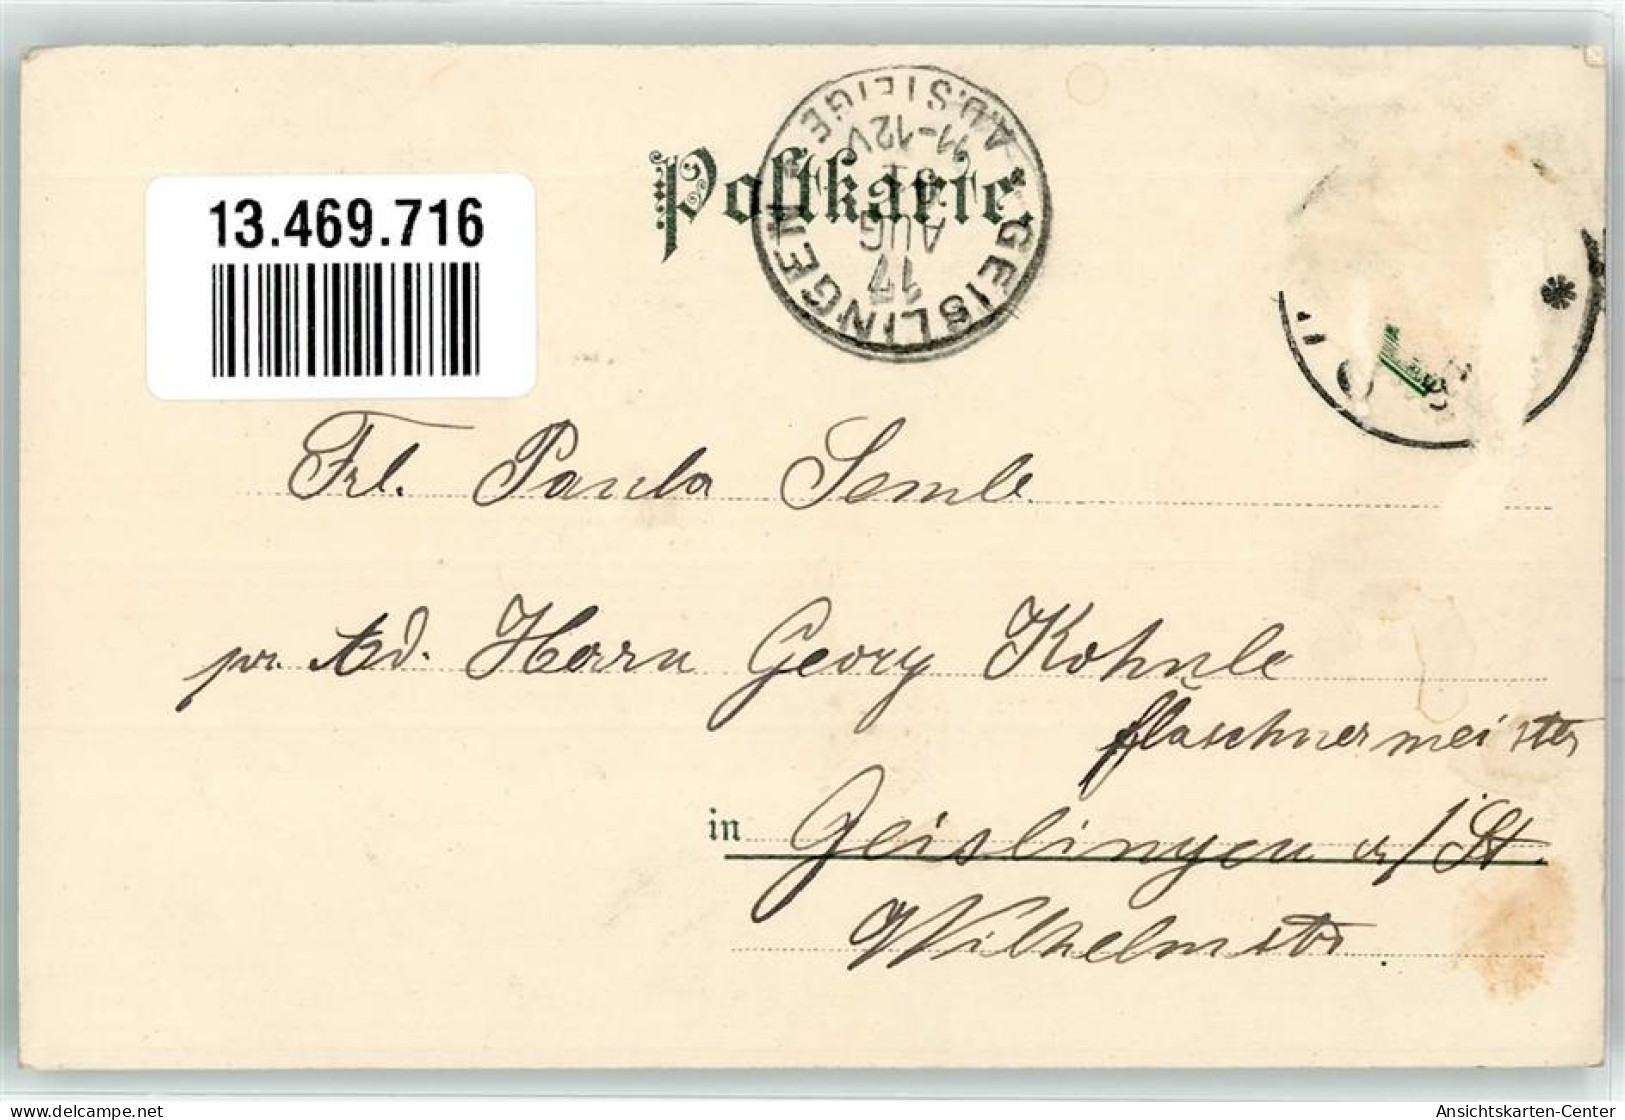 13.469.716
Postkarte.
GEISLINGEN
A.D.STEIGE
11-12V
AUG
17
Frl. Paula Semle
pr. Ad. Herrn Georg Kohnle
Flaschnermeister
in Geislingen a/St.
Wilhelmstr.
delcampe.net
Ansichtskarten-Center